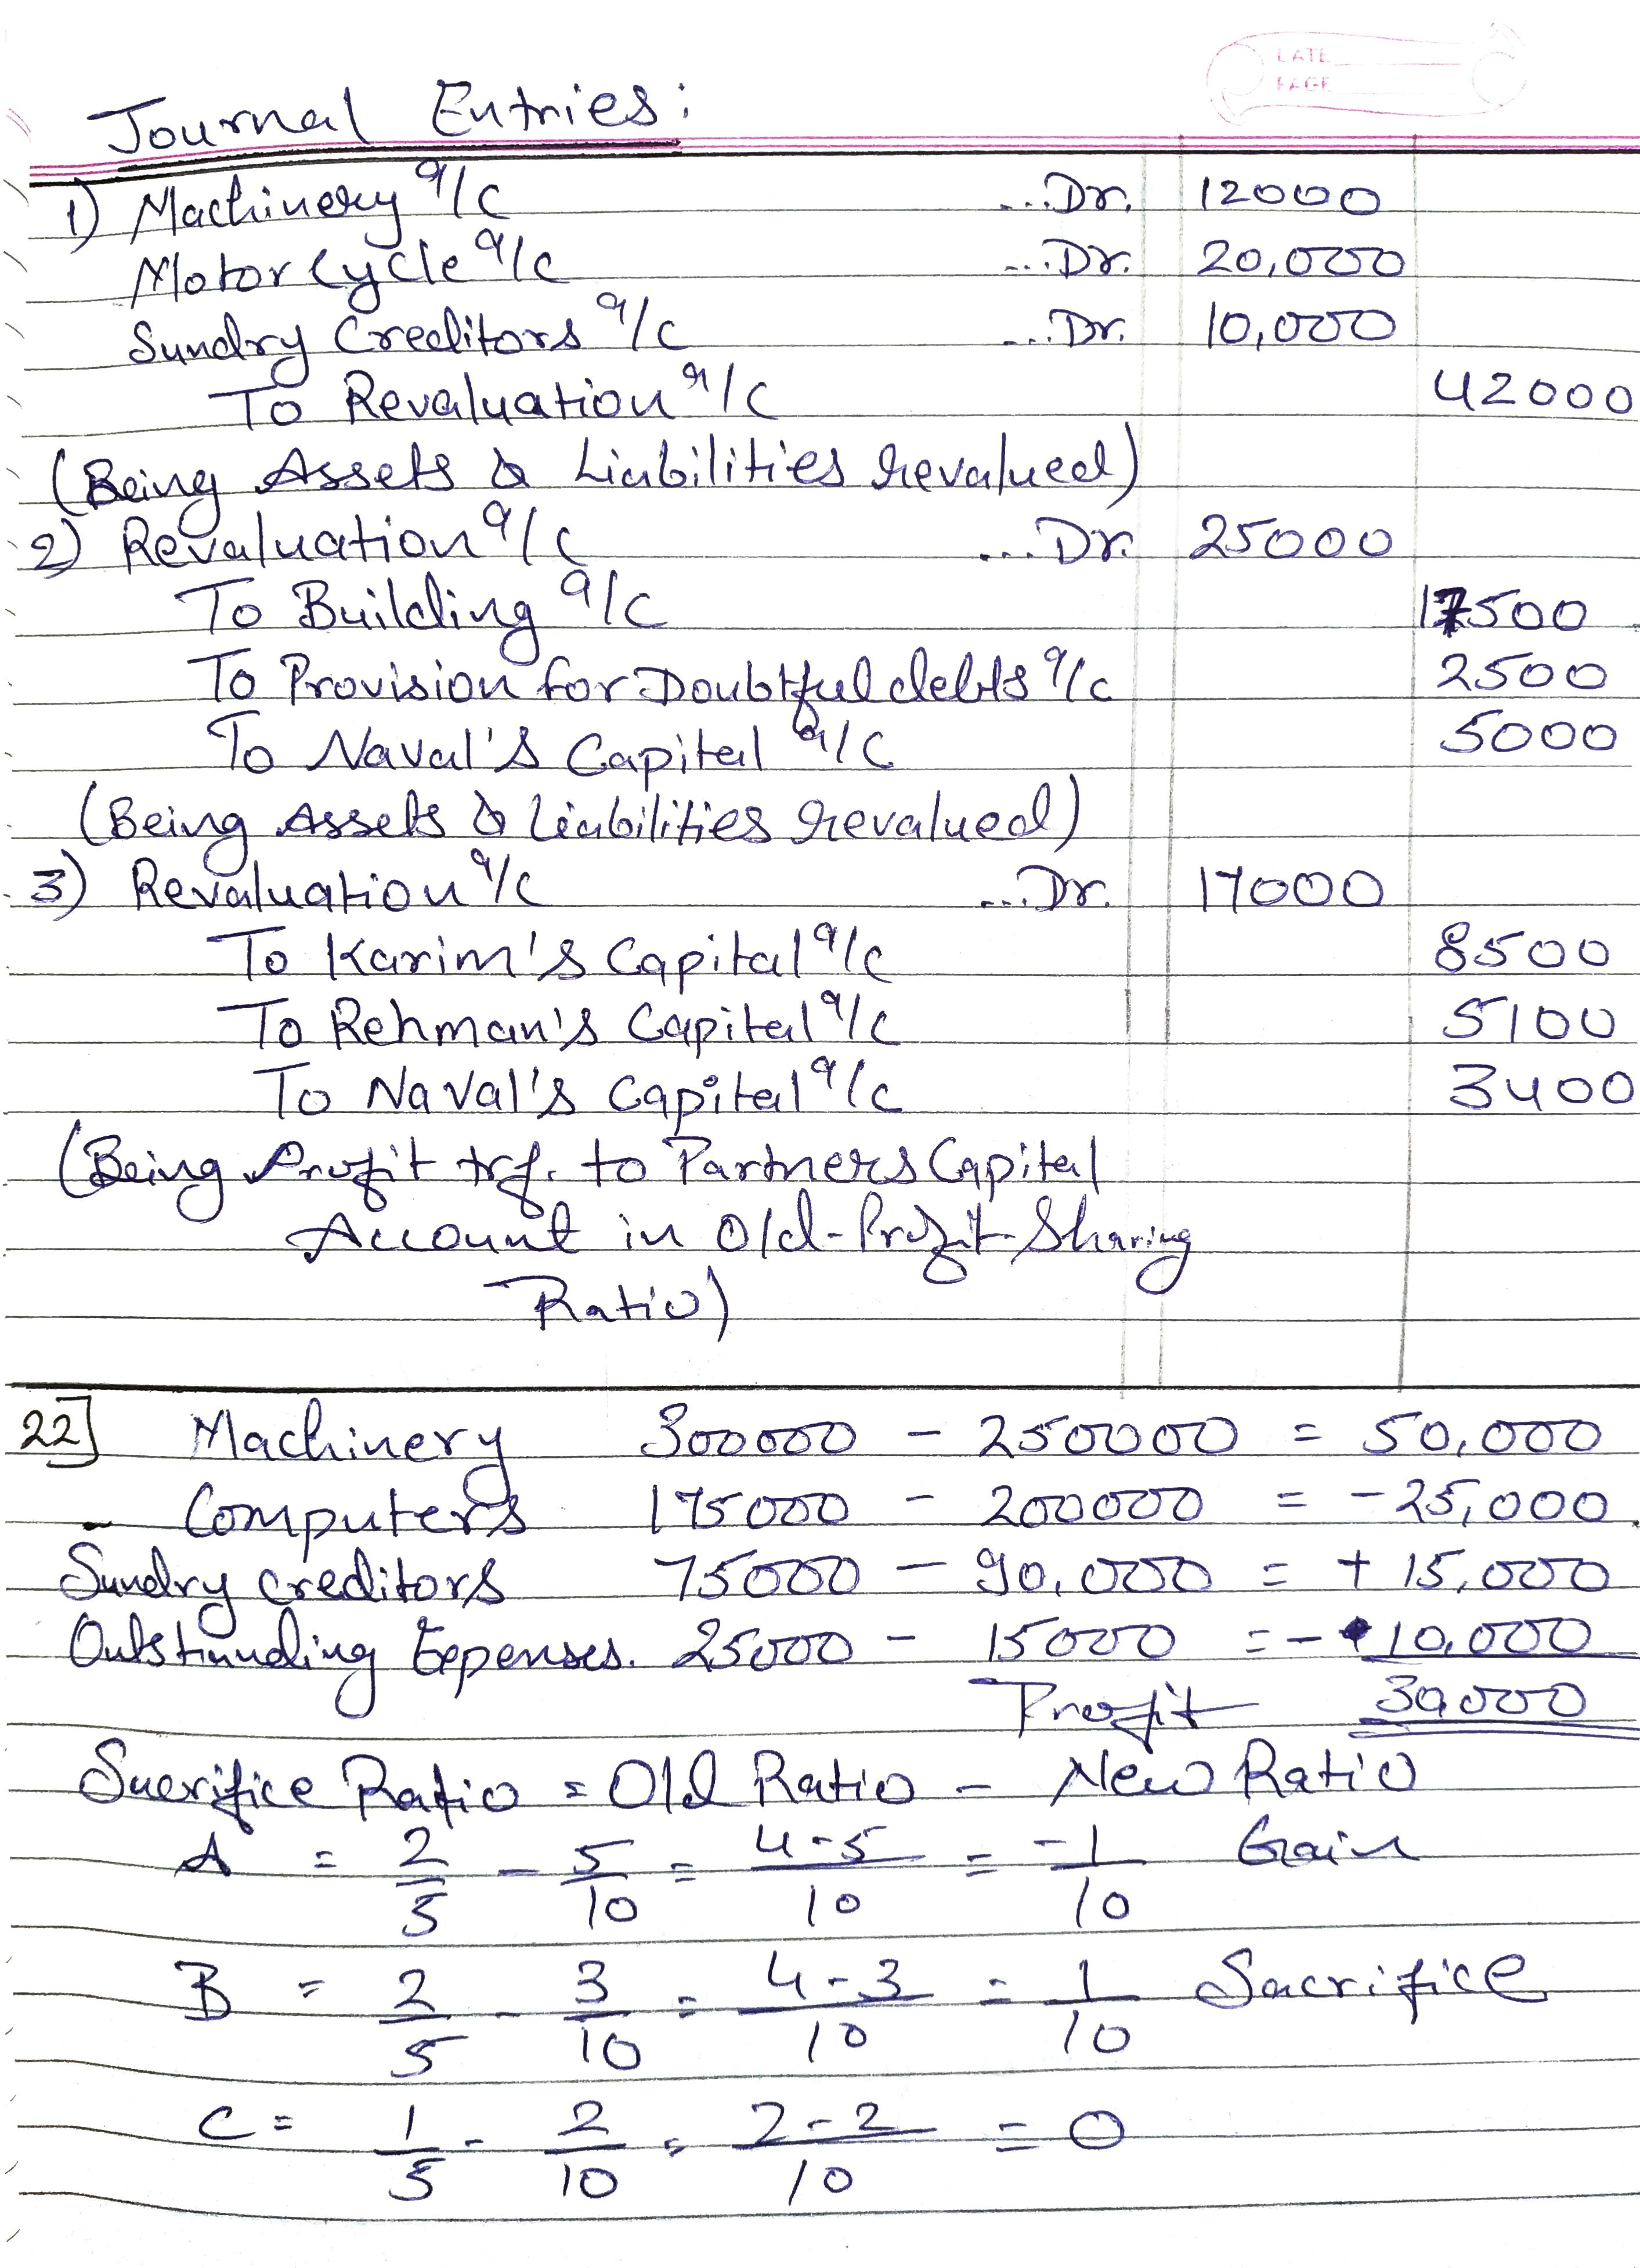 DATE
PAGE
Journal Entries:
1) Machinery a/c ...Dr. 12000
Motor Cycle a/c ...Dr. 20,000
Sundry Creditors a/c ...Dr. 10,000
To Revaluation a/c 42000
(Being Assets & Liabilities revalued)
2) Revaluation a/c ...Dr. 25000
To Building a/c 17500
To Provision for Doubtful debts a/c 2500
To Naval's Capital a/c 5000
(Being Assets & Liabilities revalued)
3) Revaluation a/c ...Dr. 17000
To Karim's Capital a/c 8500
To Rehman's Capital a/c 5100
To Naval's Capital a/c 3400
(Being Profit trf. to Partners Capital
Account in Old-Profit-Sharing
Ratio)
22] Machinery 300000 - 250000 = 50,000
Computers 175000 - 200000 = -25,000
Sundry creditors 75000 - 90,000 = + 15,000
Outstanding Expenses. 25000 - 15000 = - 10,000
Profit 30,000
Sacrifice Ratio = Old Ratio - New Ratio
A = 2/5 - 5/10 = 4-5/10 = -1/10 Gain
B = 2/5 - 3/10 = 4-3/10 = 1/10 Sacrifice
C = 1/5 - 2/10 = 2-2/10 = 0